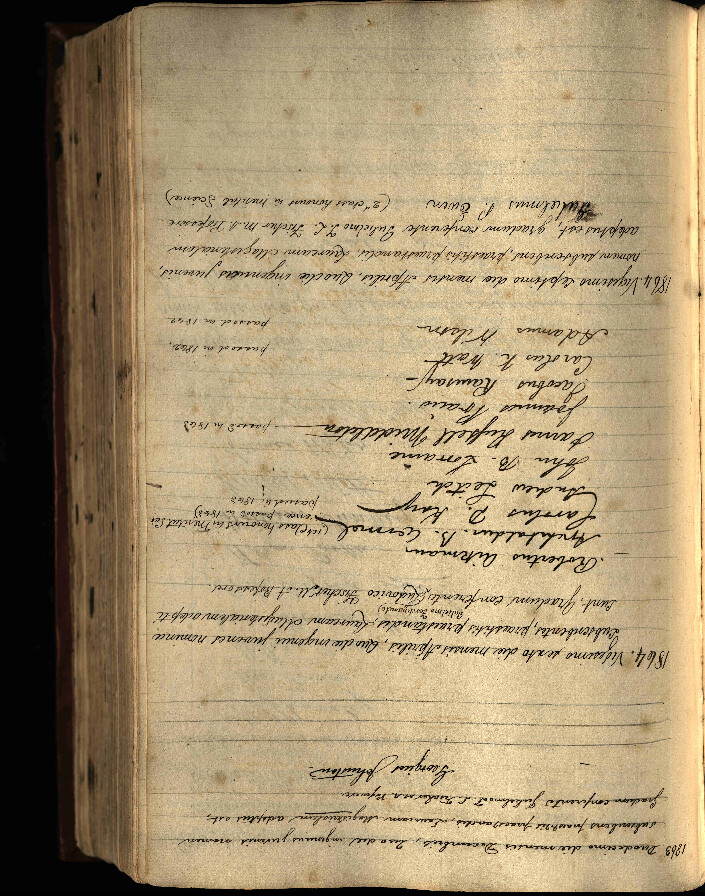 1863 Duodecimo die mensis Decembris, quo die ingenuus juvenis nomen
subscribens praestitis praestandis Lauream Magistralem adeptus est,
Gradum conferente Gulielmo L. Fischer M.A. Professore
Georgius Johnston.
1864. Vigesimo sexto die mensis Aprilis, Quo die ingenui juvenes nomina
Subscribentes, praestitis praestandis Lauream Magistralem adepti
sunt. Gradum conferente Ludovico Fischer M. A. Professore.
Robertus Aikman
Archibaldus. B. (1st Class honours in Mental Sci-
ence passed in 1863)
Carolus D. Kay passed in 1863
Andrew Leitch
John B. Lorraine
James Russell Middleton passed in 1863
Joannes
Jacobus Ramsay
Carolus N. Watt passed in 1862.
Adamus Wilson passed in 1862.
1864. Vigesimo septimo die mensis Aprilis, Quo die ingenuus juvenis,
nomen subscribens, praestitis praestandis, Lauream Magistralem
adeptus est, gradum conferente Fischer M.A. Professore
Gulielmus P. Ewin (2d class honours in Mental Science)